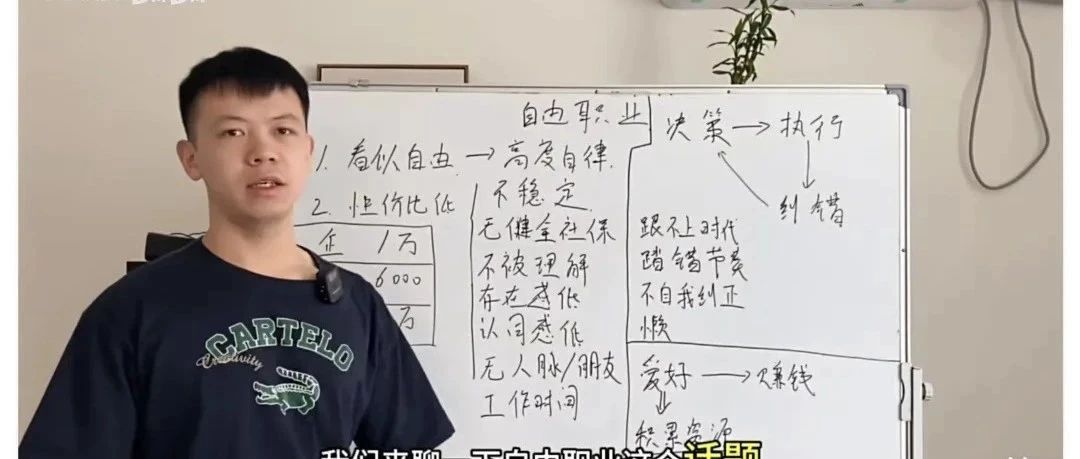 自由职业
1. 看似自由 → 高度自律.
2. 性价比低
企 1万
6000
万
不稳定
无健全社保
不被理解
存在感低
认同感低
无人脉/朋友
工作时间
决策 → 执行
纠错
跟不上时代
踏错节奏
不自我纠正
懒
爱好 → 赚钱
积累资源
CARTELO
Creativity
我们来聊一下自由职业这个话题